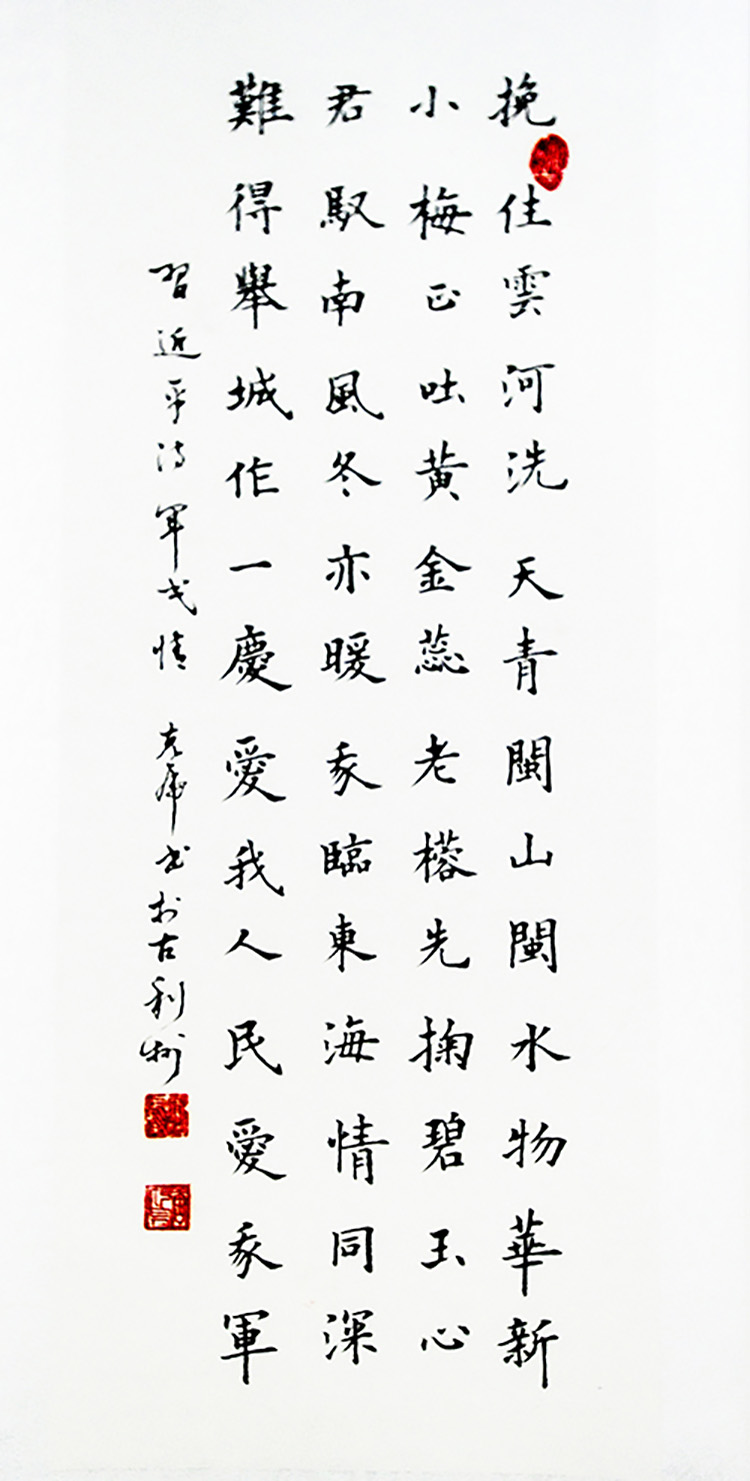 挽住雲河洗天青閩山閩水物華新
小梅正吐黃金蕊老榕先掬碧玉心
君馭南風冬亦暖我臨東海情同深
難得舉城作一慶愛我人民愛我軍
習近平詩軍民情 克書於古利州